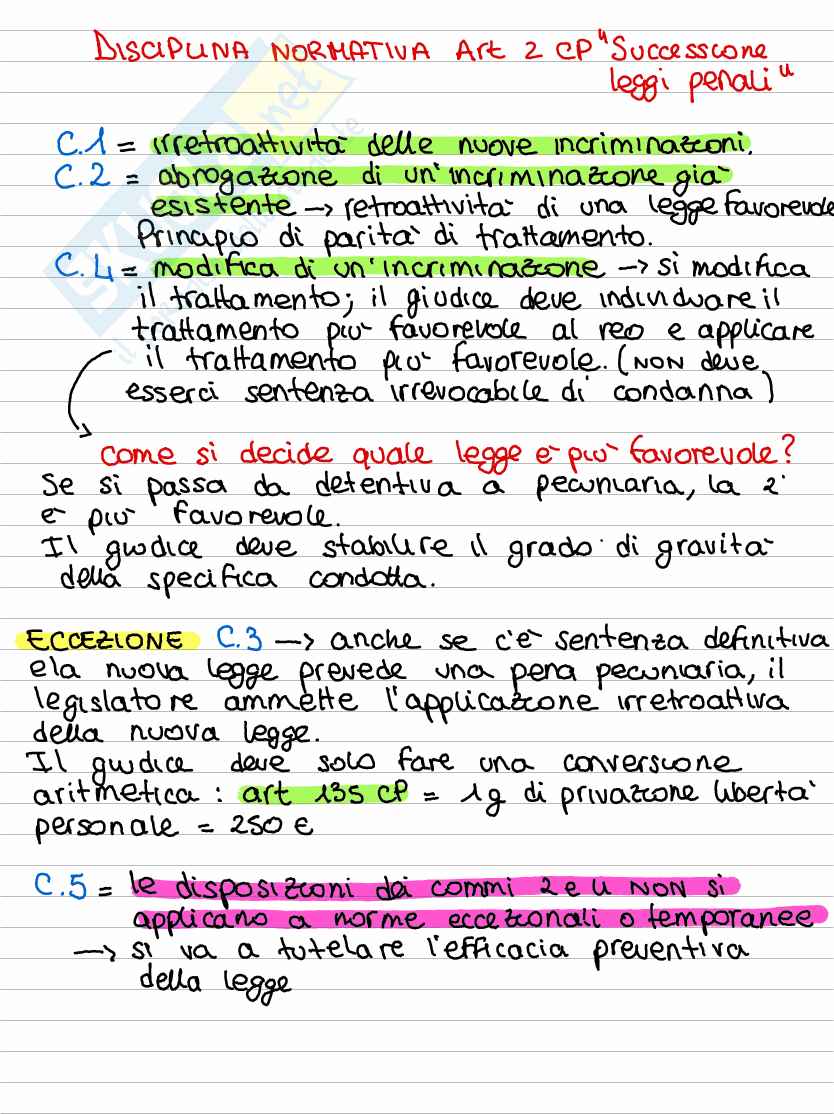 DISCIPLINA NORMATIVA Art 2 CP "Successione
leggi penali"
C.1 = irretroattività delle nuove incriminazioni.
C.2 = abrogazione di un'incriminazione già
esistente → retroattività di una legge favorevole
Principio di parità di trattamento.
C.4 = modifica di un'incriminazione → si modifica
il trattamento; il giudice deve individuare il
trattamento più favorevole al reo e applicare
il trattamento più favorevole. (NON deve
esserci sentenza irrevocabile di condanna)
come si decide quale legge è più favorevole?
Se si passa da detentiva a pecuniaria, la 2°
è più favorevole.
Il giudice deve stabilire il grado di gravità
della specifica condotta.
ECCEZIONE C.3 → anche se c'è sentenza definitiva
e la nuova legge prevede una pena pecuniaria, il
legislatore ammette l'applicazione irretroattiva
della nuova legge.
Il giudice deve solo fare una conversione
aritmetica : art 135 CP = 1g di privazione libertà
personale = 250 €
C.5 = le disposizioni dei commi 2 e 4 NON si
applicano a norme eccezionali o temporanee
→ si va a tutelare l'efficacia preventiva
della legge